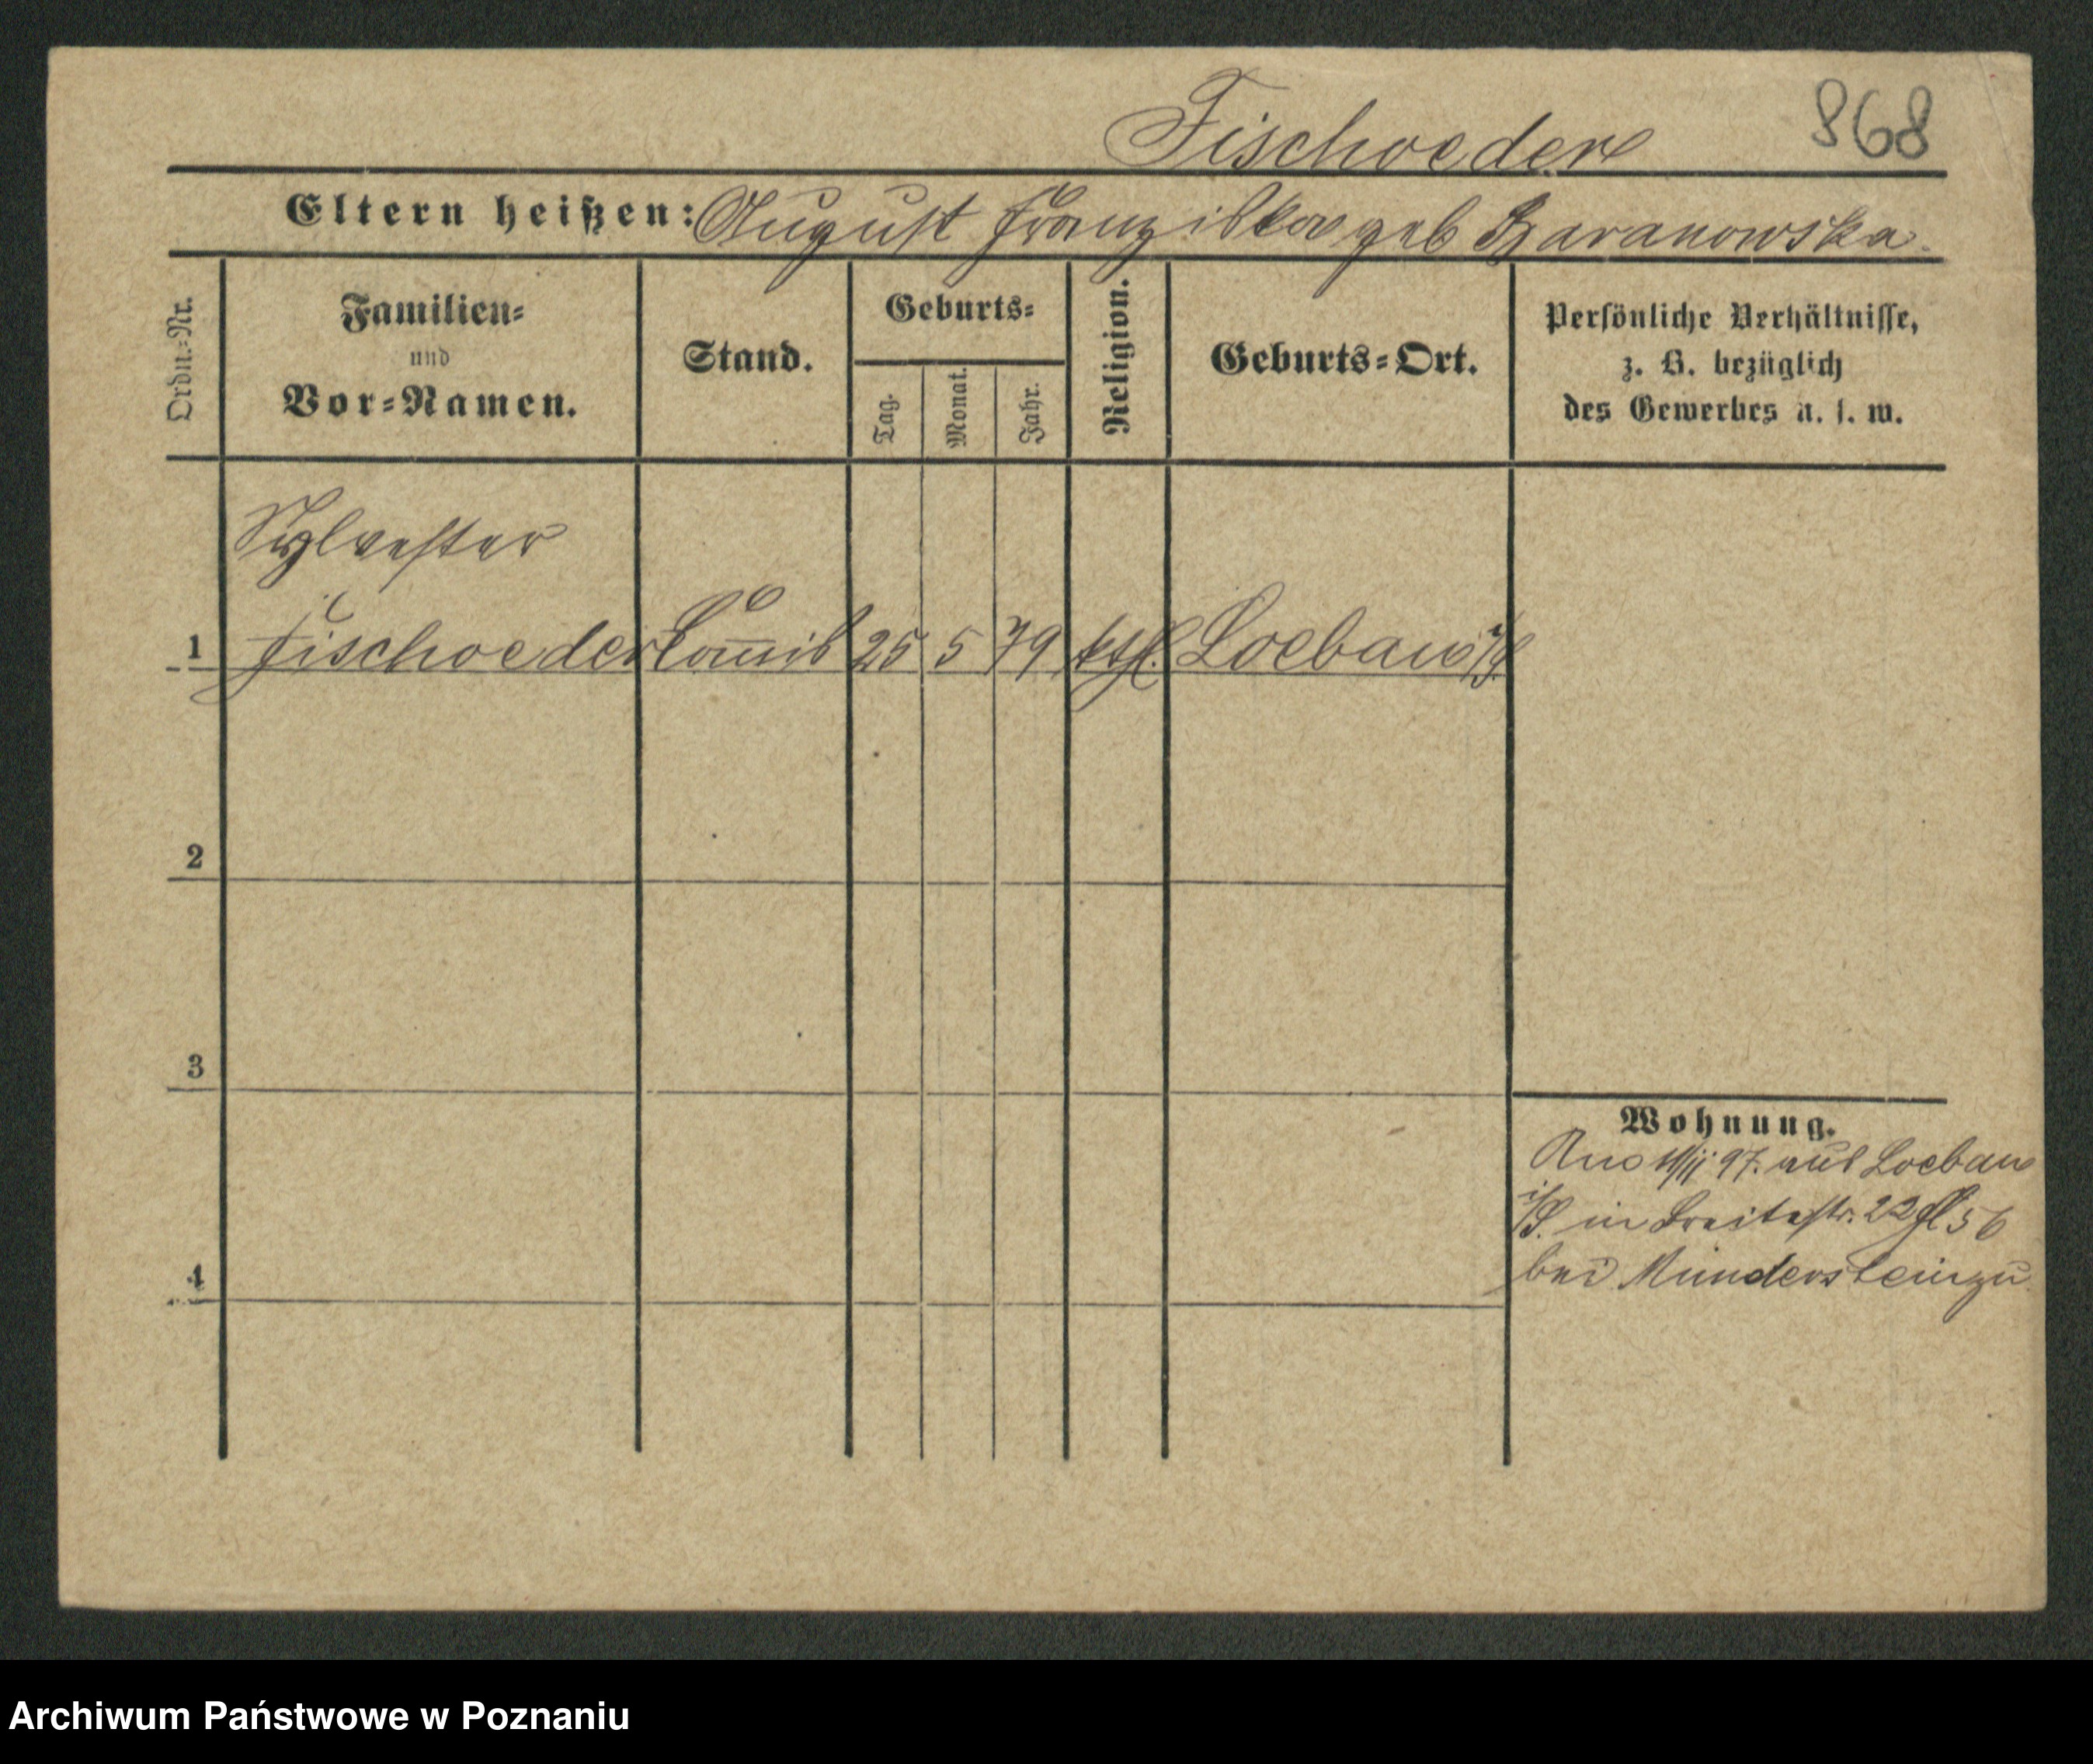 Fischoeder 868
Eltern heißen: August Franziska geb Baranowska
Ordn.-Nr. Familien- und Vor-Namen. Stand. Geburts- Tag. Monat. Jahr. Religion. Geburts-Ort. Persönliche Verhältnisse, z. B. bezüglich des Gewerbes u. s. w.
Sylvester
1 Fischoeder Commis 25 5 79 kth. Loebau
2
3
4
Wohnung.
97. aus Loebau
in Breitestr. 22 56
bei zu
Archiwum Państwowe w Poznaniu